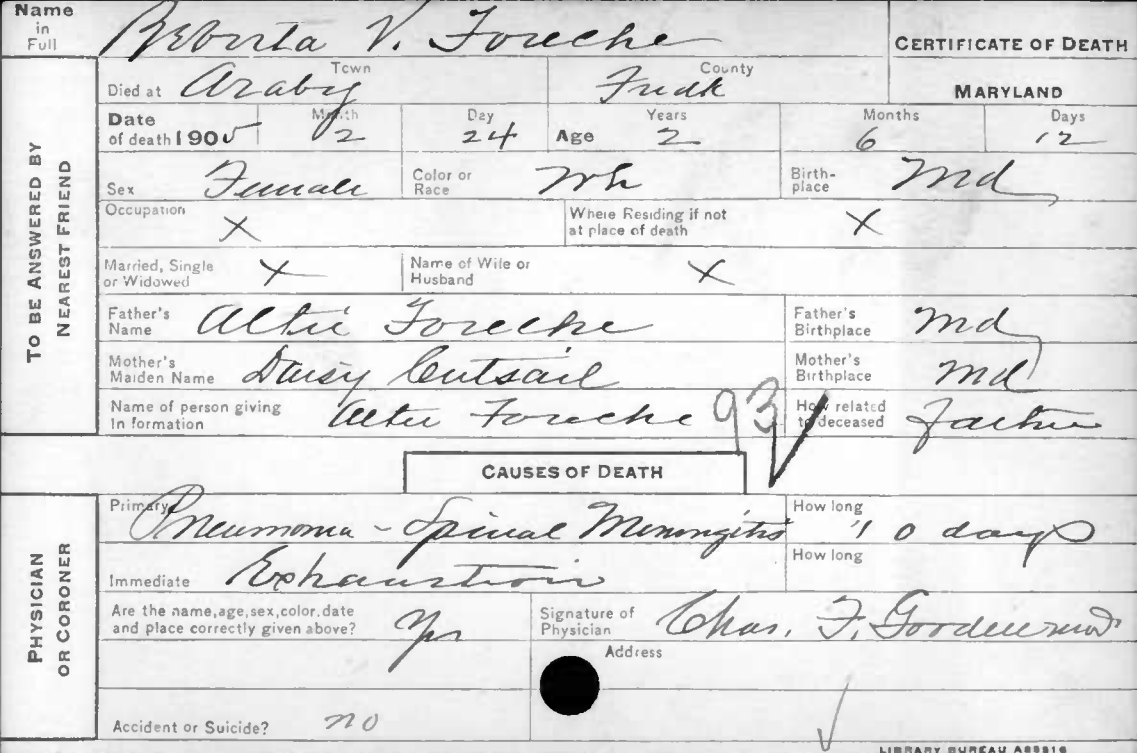 Name in Full Reberta V. Foreche
CERTIFICATE OF DEATH
MARYLAND
TO BE ANSWERED BY NEAREST FRIEND
Died at Araby Town Fredk County
Date of death 1905 Month 2 Day 24 Age Years 2 Months 6 Days 12
Sex Female Color or Race Wh Birth-place Md
Occupation X Where Residing if not at place of death X
Married, Single or Widowed X Name of Wife or Husband X
Father's Name Altie Foreche Father's Birthplace Md
Mother's Maiden Name Daisy Cutsail Mother's Birthplace Md
Name of person giving In formation Altie Foreche How related to deceased Father
93
CAUSES OF DEATH
PHYSICIAN OR CORONER
Primary Pneumonia - Spinal Meningitis How long 10 days
Immediate Exhaustion How long
Are the name, age, sex, color, date and place correctly given above? Yes Signature of Physician Chas. F. Goodell
Address
Accident or Suicide? no
LIBRARY BUREAU